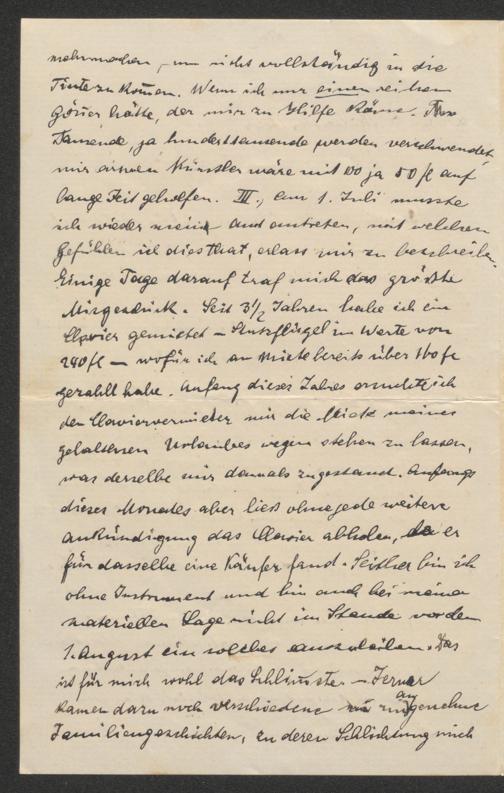 mehr machen, um nicht vollständig in die
Tinte zu kommen. Wenn ich nur einen reichen
Gönner hätte, der mir zu Hilfe käme.
Tausende, ja hunderttausende werden verschwendet,
mir armen Künstler wäre mit 100 ja 50 fl auf
lange Zeit geholfen. III., am 1. Juli musste
ich wieder mein Amt antreten, mit welchen
Gefühlen ich dies that, erlass mir zu beschreiben.
Einige Tage darauf traf mich das größte
Missgeschick. Seit 3 1/2 Jahren habe ich ein
Clavier gemietet – Stutzflügel im Werte von
240 fl – wofür ich an Miete bereits über 160 fl
gezahlt habe. Anfang dieses Jahres ersuchte ich
den Claviervermieter mir die Miete meines
gehaltenen Urlaubes wegen stehen zu lassen,
was derselbe mir damals zugestand. Anfangs
dieses Monates aber liess ohne jede weitere
Ankündigung das Clavier abholen, da er
für dasselbe eine Käufer fand. Seither bin ich
ohne Instrument und bin auch bei meiner
materiellen Lage nicht im Stande vor dem
1. August ein solches auszuleihen. Das
ist für mich wohl das Schlimmste. – Ferner
kamen dazu noch verschiedene unangenehme
Familiengeschichten, zu deren Schlichtung mich